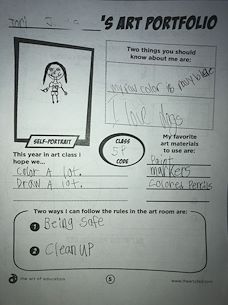 'S ART PORTFOLIO
Two things you should
know about me are:
my fav color is
I love dogs
SELF-PORTRAIT
CLASS
CODE
This year in art class I
hope we...
color A lot.
Draw A lot.
My favorite
art materials
to use are:
Paint
markers
Colored Pencils
Two ways I can follow the rules in the art room are:
1 Being Safe
2 Clean UP
the art of education
5
www.theartofed.com